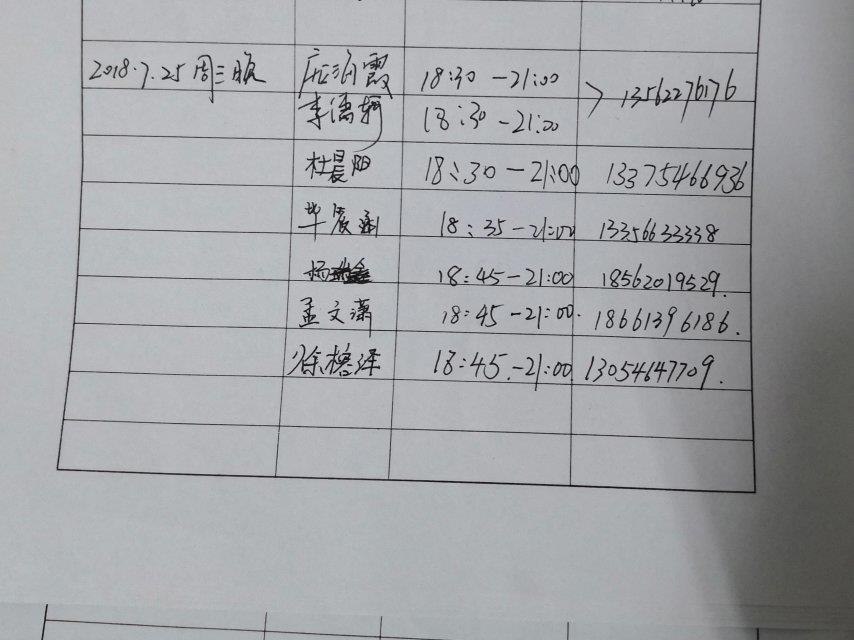 2018.7.25 周三晚 庞润霞 18:30 -21:00 > 13562276176
李潘 18:30 -21:00
杜晨阳 18:30 -21:00 13375466936
毕晨 18:35 -21:00 13356633338
杨鑫 18:45 -21:00 18562019529.
孟文潇 18:45 -21:00. 18661396186.
徐榕泽 18:45.-21:00 13054647709.